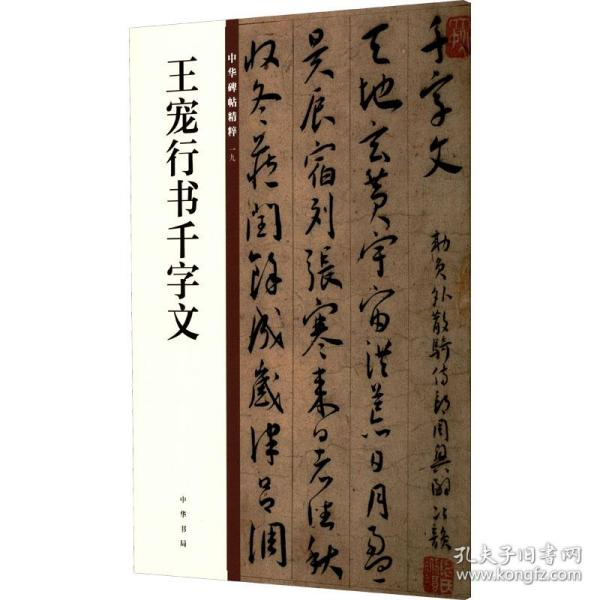 王宠行书千字文
中华书局
中华碑帖精粹 一九
千字文
勅員外散騎侍郎周興嗣次韻
天地玄黄宇宙洪荒日月盈
昃辰宿列張寒来暑往秋
收冬蔵閏餘成歲律呂調
孔夫子旧书网
www.kongfz.com